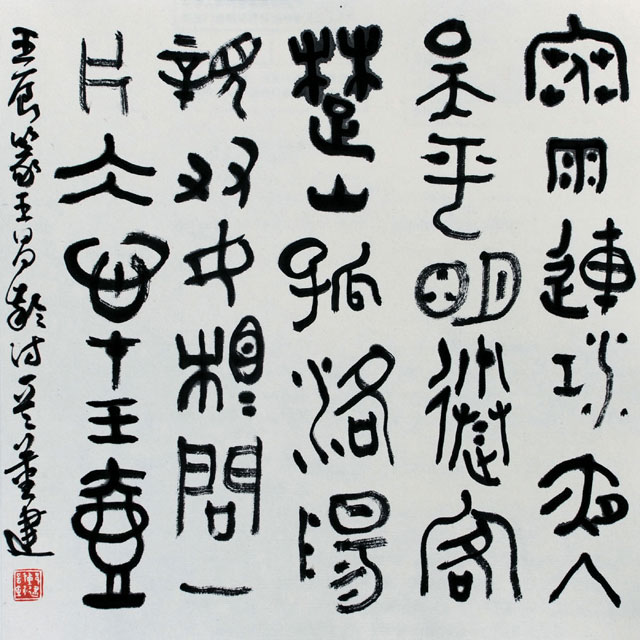 寒雨連江夜入
吳平明送客
楚山孤洛陽
親友如相問一
片冰心在玉壺
壬辰篆王昌齡詩一首董建